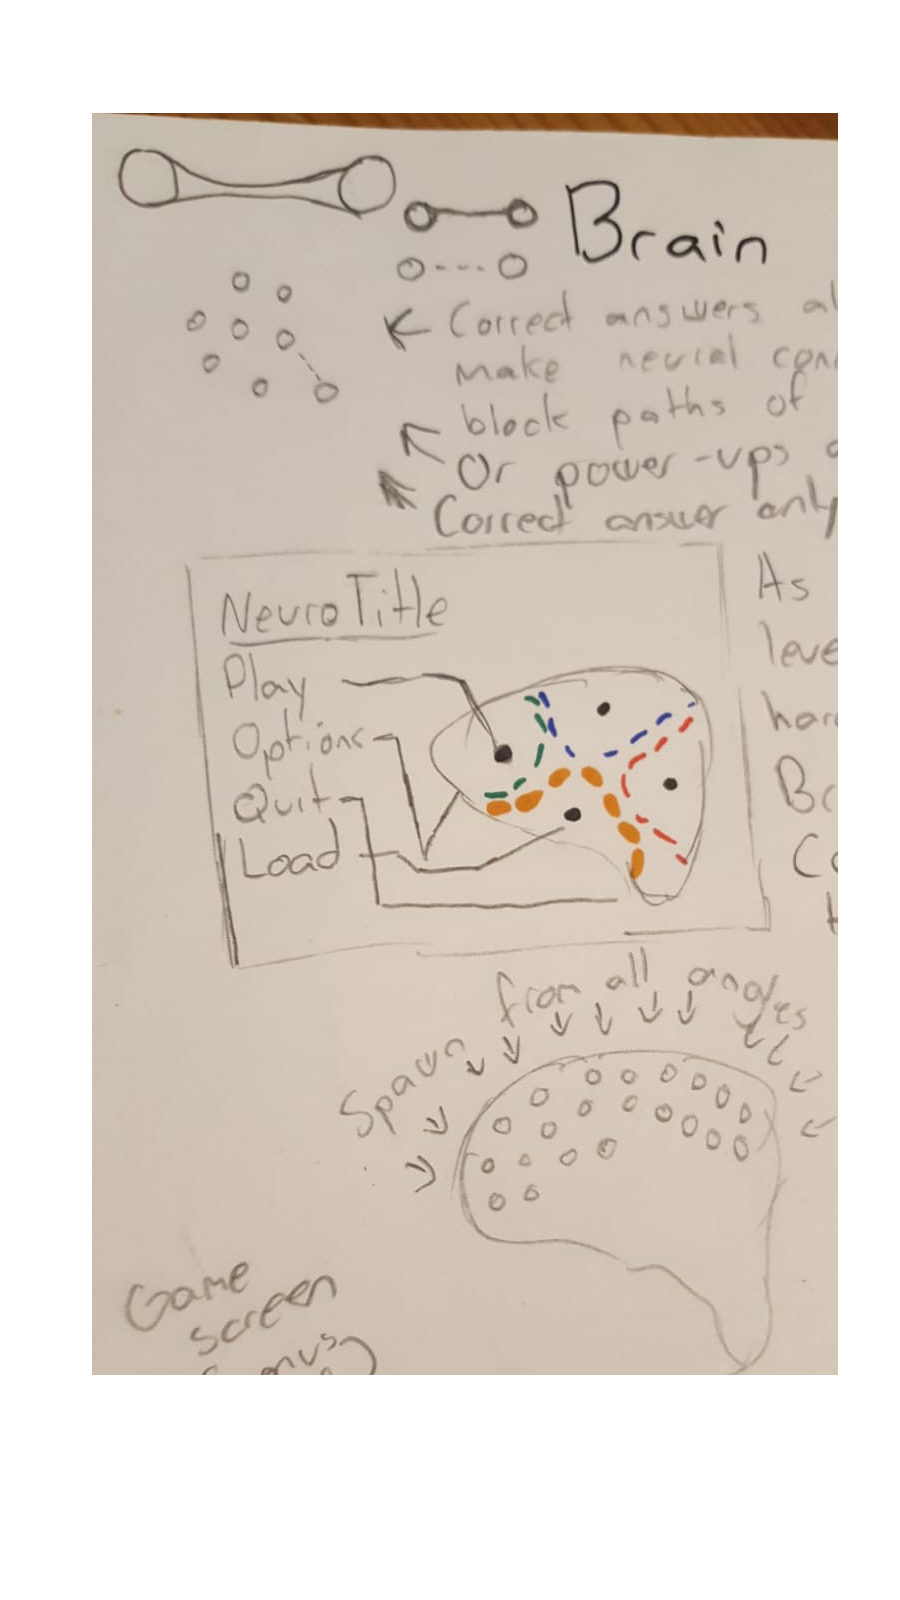 Brain
Correct answers al
make neural con
block paths of
Or power-ups
Correct answer only
NeuroTitle
Play
Options
Quit
Load
As
leve
har
Spawn from all angles
Game
screen